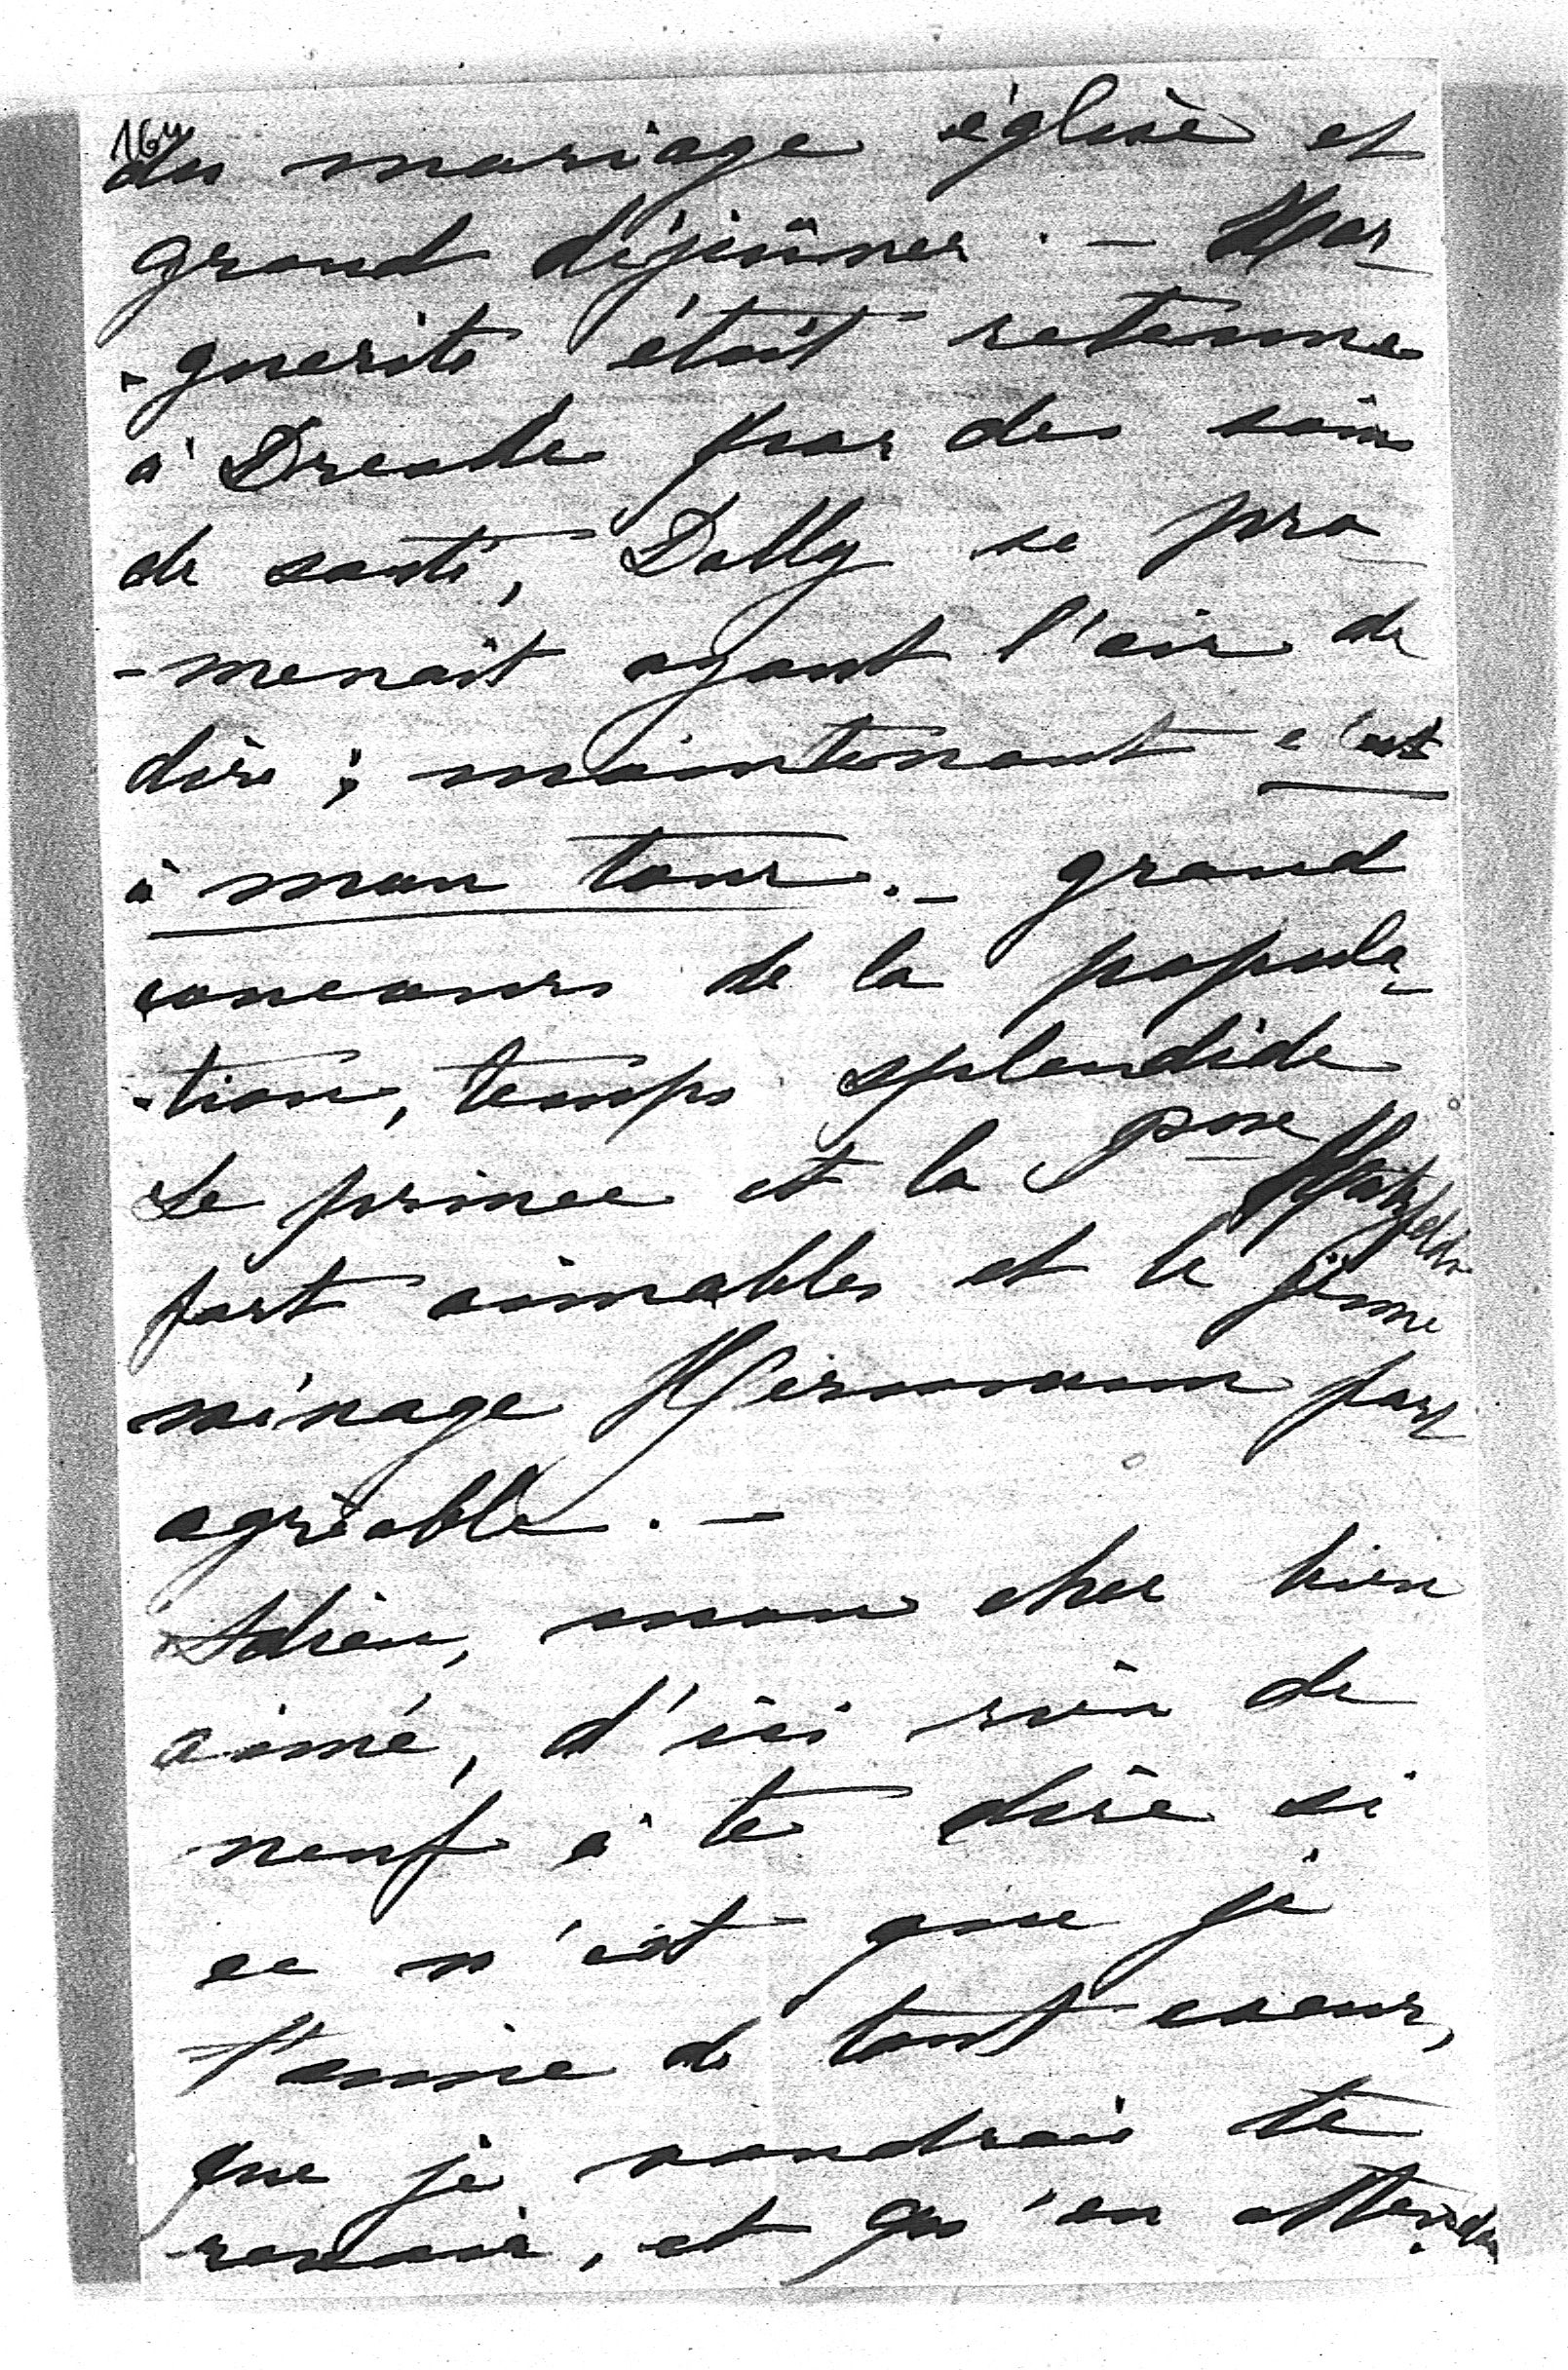 164
du mariage église et
grand déjeûner. – Mar
-guerite était retenue
à Dresde par des soins
de santé, Dolly se pro
-menait ayant l'air de
dire ; maintenant c'est
à mon tour. – grand
concours de la popula-
-tion, temps splendide
Le prince et la pcse Hatzfeldt
fort aimables et le jeune
ménage Hermann part
agréable. –
Adieu, mon cher bien
aimé, d'ici rien de
neuf à te dire si
ce n'est que je
t'aime de tout coeur,
que je voudrais te
revoir, et qu'en attendant